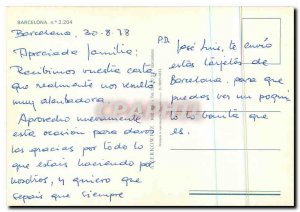 BARCELONA. n.º 2.204
Barcelona, 30-8-78
Apreciada familia:
Recibimos vuestra carta
que realmente nos resultó
muy alentadora.
Aprovecho nuevamente
esta ocasión para daros
las gracias por todo lo
que estáis haciendo por
nosotros, y quiero que
sepáis que siempre
P.D.
José Luis, te envío
estas tarjetas de
Barcelona, para que
puedas ver un poquito
lo bonita que
es.